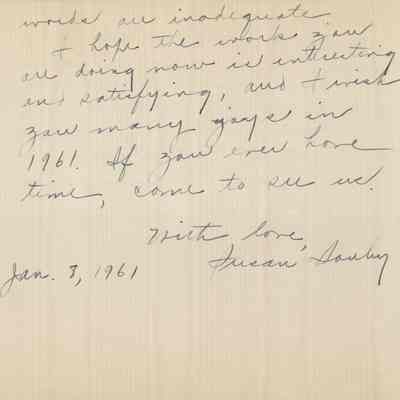 words are inadequate
I hope the work you
are doing now is interesting
and satisfying, and I wish
you many joys in
1961. If you ever have
time, come to see us.
With love,
Susan
Jan. 3, 1961